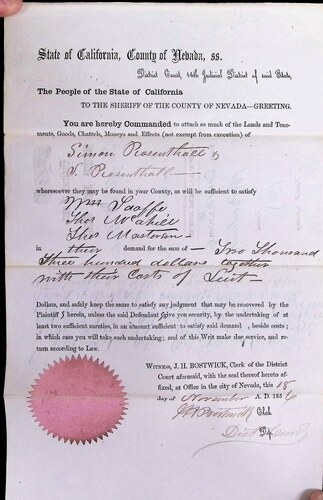 State of California, County of Nevada, ss.
District Court, 14th Judicial District of said State,
The People of the State of California
TO THE SHERIFF OF THE COUNTY OF NEVADA—GREETING.
You are hereby Commanded to attach so much of the Lands and Tene-
ments, Goods, Chattels, Moneys and Effects (not exempt from execution) of
Simon Rosenthall &
Rosenthall
wheresoever they may be found in your County, as will be sufficient to satisfy
Wm
Thos McCahill
Thos Masterson
in their demand for the sum of — Two Thousand
Three hundred dollars together
with their Costs of Suit —
Dollars, and safely keep the same to satisfy any judgment that may be recovered by the
Plaintiff herein, unless the said Defendant give you security, by the undertaking of at
least two sufficient sureties, in an amount sufficient to satisfy said demand, besides costs;
in which case you will take such undertaking; and of this Writ make due service, and re-
turn according to Law.
WITNESS, J. H. BOSTWICK, Clerk of the District
Court aforesaid, with the seal thereof hereto af-
fixed, at Office in the city of Nevada, this 18
day of November A. D. 1856
J H Bostwick Clerk.
Dep.